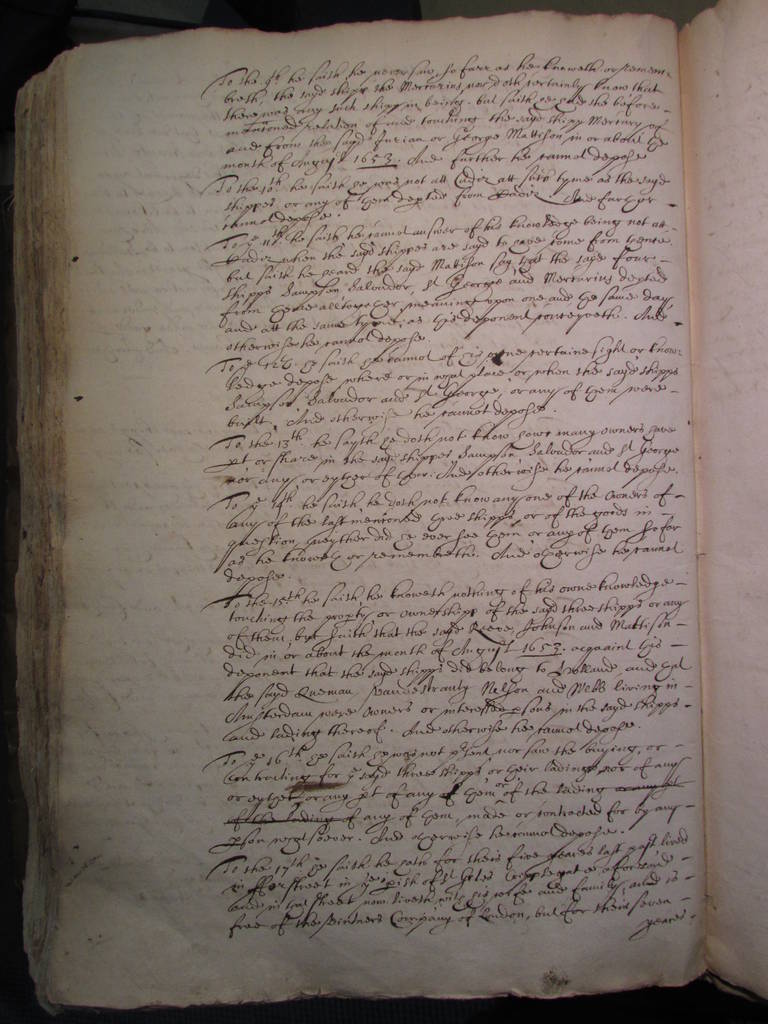 To the 9th he saith he never saw, so farr as he knoweth or remem-
breth, the sayd shipp the Mercurius, nor doth certainly know that
there was any such shipp in being, but saith he had the before-
mentioned relation of and touching the sayd shipp Mercury of
and from the sayd Jurian or George Mattison in or about the
month of August 1653. And further he cannot depose
To the 10th he saith he was not att Cadiz att such tyme as the sayd
shippes or any of them departed from Cadiz. And further
cannot depose.
To ye 11th he saith he cannot answer of his knowledge being not att
Cadiz when the sayd shippes are sayd to have come from thence
but saith he heard the sayd Mattison say that the sayd four
shipps Sampson Salvador, St George and Mercurius departed
from thence alltogether, meaning upon one and the same day
and att the same tyme, as this deponent conceyveth. And
otherwise he cannot depose.
To ye 12th he saith he cannot of his owne certaine sight or know-
ledge depose where or in what place or when the sayd shipps
Sampson Salvador and St George, or any of them were
built. And otherwise he cannot depose.
To the 13th he sayth he doth not know how many owners have
pt or share in the sayd shippes Sampson, Salvador and St George
nor any or eyther of them. And otherwise he cannot depose.
To ye 14th he saith he doth not know any one of the owners of
any of the last mentioned three shipps, or of the goods in
question, neyther did he ever see them or any of them so far
as he knoweth or remembreth. And otherwise he cannot
depose.
To the 15th he saith he knoweth nothing of his owne knowledge
touching the propty or ownershipp of the sayd three shipps or any
of them, but saith that the sayd Johnson and Mattison
did in or about the month of August 1653. acquaint this
deponent that the sayd shipps did belong to Holland, and that
the sayd Nelson and Webb living in
Amsterdam were owners or interessed psons in the sayd shipps
and lading thereof. And otherwise he cannot depose.
To ye 16th he saith he was not psent nor saw the buying, or
contracting for ye sayd three shipps or their ladings nor of any
or eyther or any pt of any of them or of the lading or any pt
of the lading of any of them, made or contracted for by any
pson whatsoever. And otherwise he cannot depose.
To the 17th he saith he hath for theis five yeares last past lived
in street in ye pish of St Giles Cripplegate
and in that street now liveth with his wife and family, and is
free of the Company of London, but for theis seven
yeares